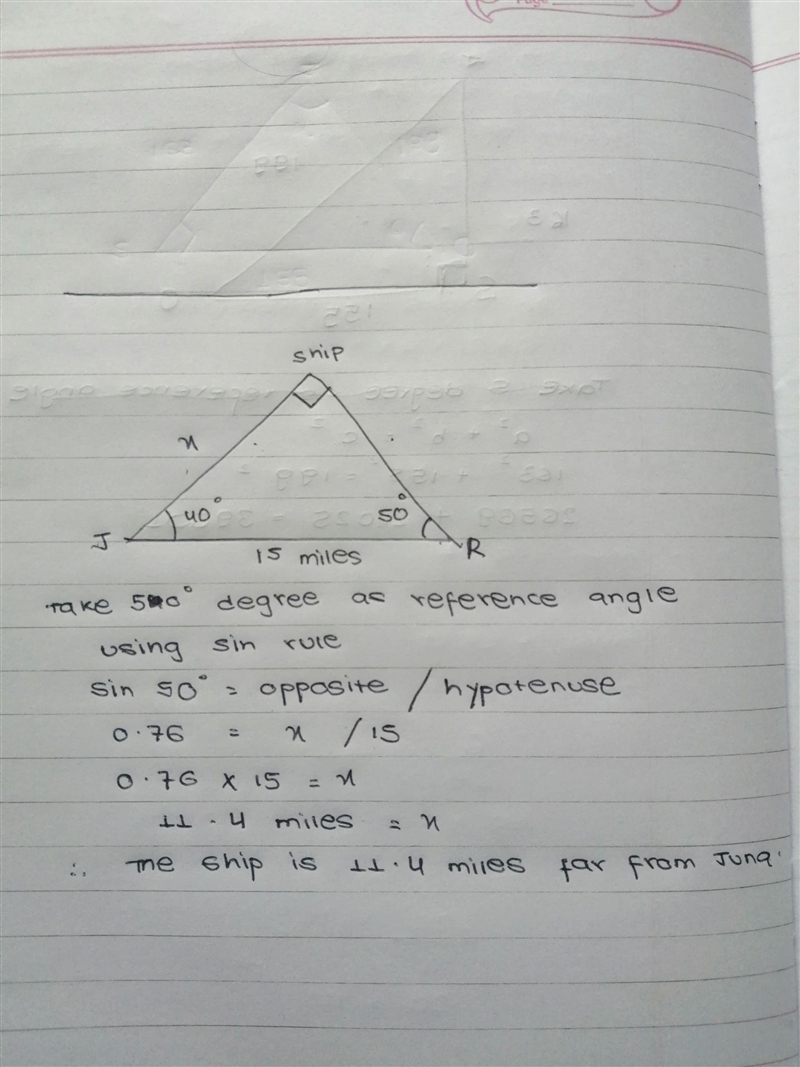 Page
ship
x
40°
50°
J
15 miles
R
Take 50° degree as reference angle
using sin rule
sin 50° = opposite / hypotenuse
0.76 = x / 15
0.76 x 15 = x
11.4 miles = x
∴ The ship is 11.4 miles far from Juna.